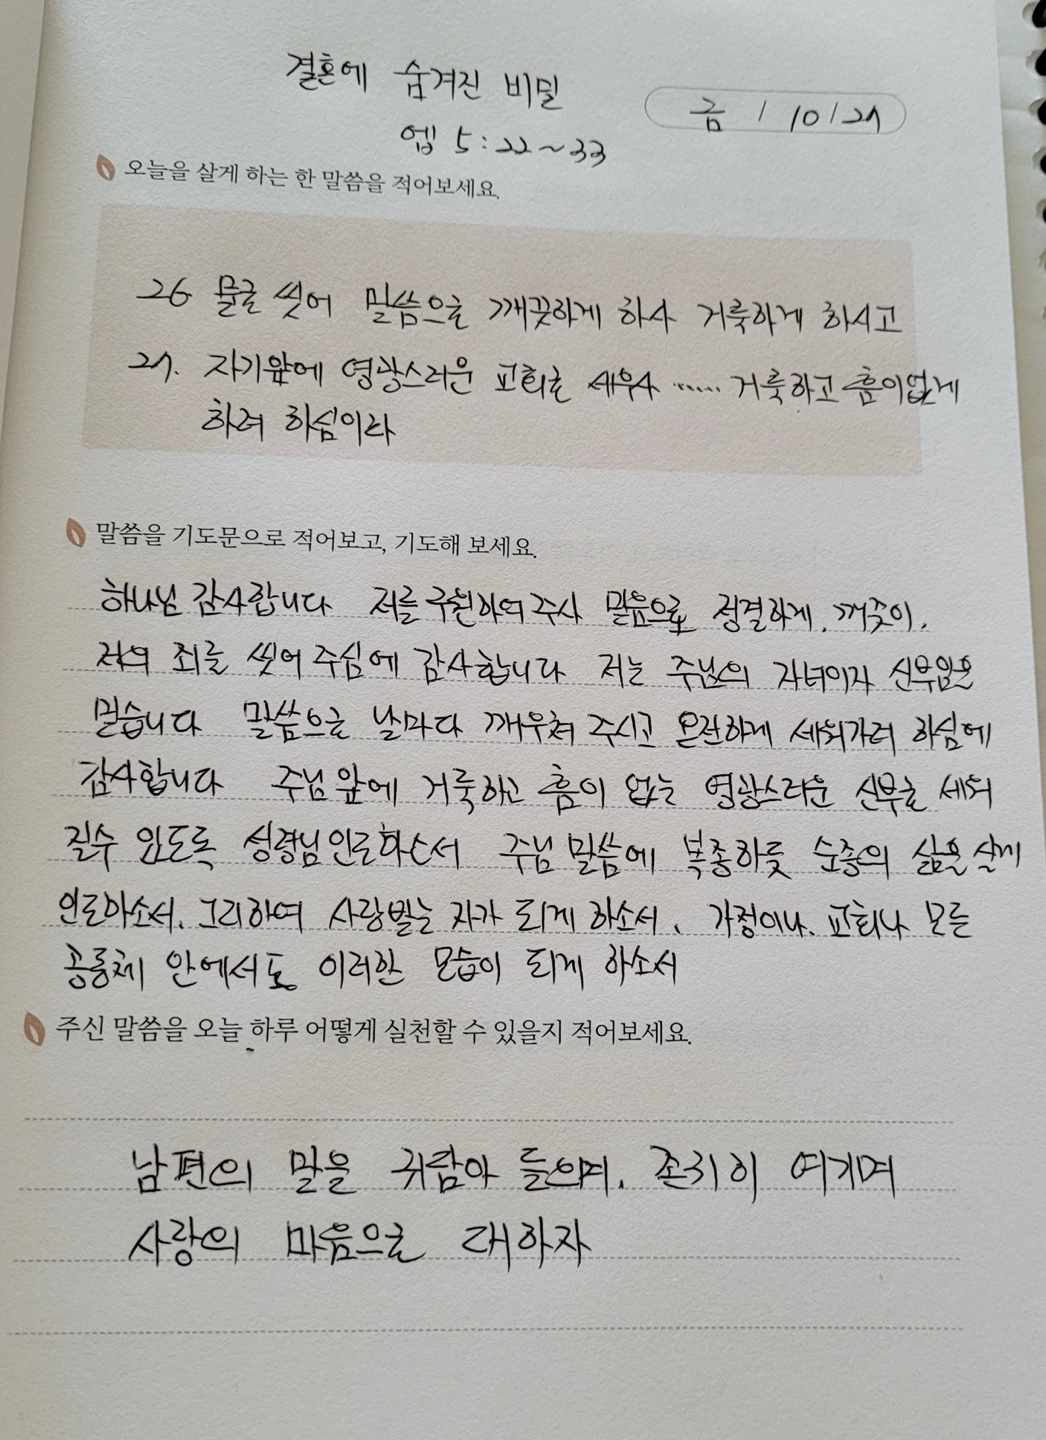 결혼에 숨겨진 비밀
금 / 10/27
엡 5:22~33
오늘을 살게 하는 한 말씀을 적어보세요.
26 물로 씻어 말씀으로 깨끗하게 하사 거룩하게 하시고
27. 자기앞에 영광스러운 교회로 세우사 ...... 거룩하고 흠이없게
하려 하심이라
말씀을 기도문으로 적어보고, 기도해 보세요.
하나님 감사합니다 저를 구원하여주사 말씀으로 정결하게, 깨끗이,
저의 죄를 씻어 주심에 감사합니다 저는 주님의 자녀이자 신부임을
믿습니다 말씀으로 날마다 깨우쳐 주시고 온전하게 세워가려 하심에
감사합니다 주님 앞에 거룩하고 흠이 없는 영광스러운 신부로 세워
질수 있도록 성령님 인도하소서 주님 말씀에 복종하듯 순종의 삶을 살게
인도하소서. 그리하여 사랑받는 자가 되게 하소서. 가정이나, 교회나 모든
공동체 안에서도 이러한 모습이 되게 하소서
주신 말씀을 오늘 하루 어떻게 실천할 수 있을지 적어보세요.
남편의 말을 귀담아 들으며, 존귀히 여기며
사랑의 마음으로 대하자